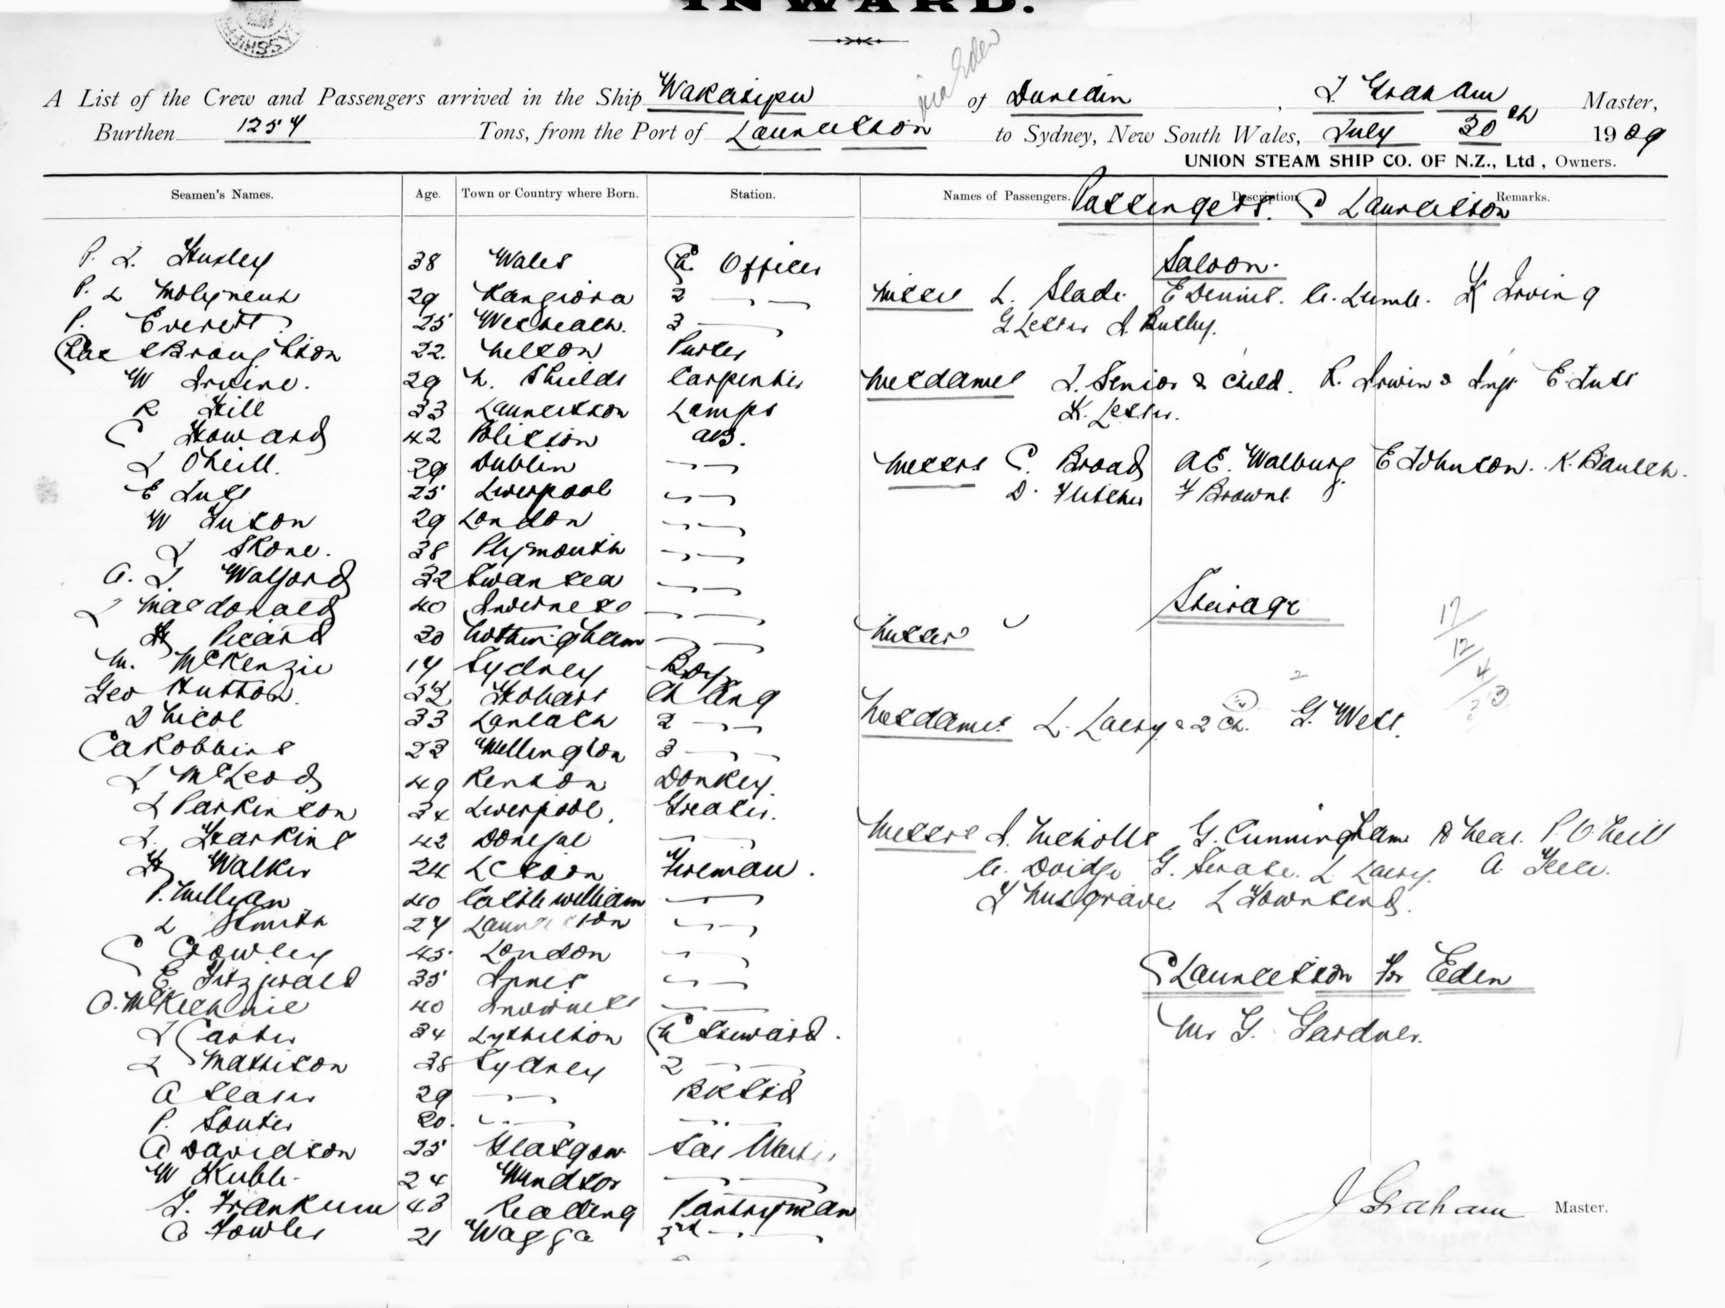 INWARD.
via Eden
A List of the Crew and Passengers arrived in the Ship Wakatipu of Dunedin, J. Graham Master,
Burthen 1254 Tons, from the Port of Launceston to Sydney, New South Wales, July 30th 1909
UNION STEAM SHIP CO. OF N.Z., Ltd, Owners.
Seamen's Names. Age. Town or Country where Born. Station. Names of Passengers. Description Remarks.
Passengers. Launceston
P. J. Huxley 38 Wales Ch. Officer
P. L Molyneux 29 Rangiora 2 — —
P. Everett 25 Wisbeach. 3 —
Chas Broughton 22. Nelson Purser
W Irvine. 29 N. Shields Carpenter
R Hill 33 Launceston Lamps
C Howard 42 Bilston AB.
J O'Neill. 29 Dublin — —
E Tuts 25 Liverpool — —
W Tuson 29 London — —
J Skone. 38 Plymouth — —
A. J Walford 32 Swansea — —
J Macdonald 40 Inverness — —
H Picard 30 Nottingham — —
M. McKenzie 14 Sydney Boy
Geo Hutton. 52 Hobart Ch Eng
D Nicol 33 Larbach 2 — —
C A Robbins 23 Wellington 3 — —
J McLeod 49 Renton Donkey.
J Parkinson 34 Liverpool. Greaser.
J. Harkins 42 Donegal — —
H Walker 24 Fireman.
P. Milligan 40 Castle william — —
L Smith 24 Launceston — —
C Crowley 45 London — —
E. Fitzgerald 35 — —
D. McKechnie 40 Inverness — —
J Carter 34 Lyttelton Ch Steward.
J Mattison 38 Sydney 2 — —
A 29 — — BK Std
P. Souter 20. — — — —
A Davidson 25 Glasgow Sal Waiter
W Kubb. 24 Windsor — —
J. Frankum 43 Reading Pantryman
C Fowler 21 Wagga 2nd — —
Saloon.
Misses L. Slade. E Dennis. A. Lumb. K Irving
G. Lester J. Busby.
Mesdames J. Senior & Child. R. Irwin & Inft E Tuts
K. Lester.
Messrs C. Broad A E. Walburg. E Johnson. K. Bauleh.
D. Fletcher F Browne
Steirage
Misses
Mesdames L. Lacey & 2 Ch. G. West.
Messrs J. Nicholls G. Cunningham R Neal. P. O'Neill
A. Doidge G. L. Lacey.
F Musgrave. L Townsend.
Launceston For Eden
Mr G. Gardner.
17
12
4
J Graham Master.